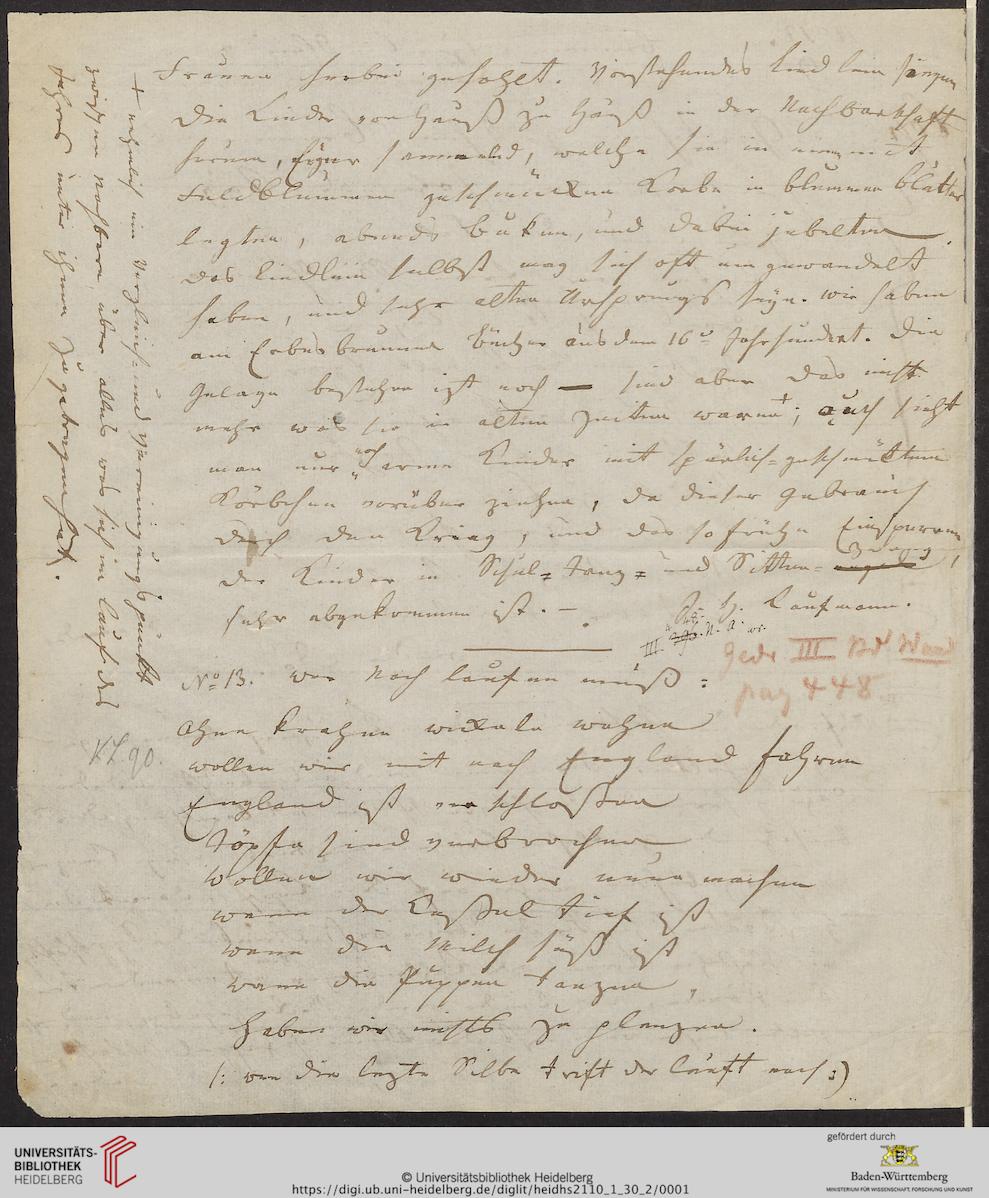 Frauen herbei geholzet. Vorstehendes Liedlein singen
die Kinder von Hauß zu Hauß in der Nachbarschaft
herum, Eyer sammelnd, welche sie in einem mit
Feldblumen geschmückten Korbe in blumen blätter
legten, abends buken, und dabei jubelten.
das Liedlein selbst mag sich oft umgewandelt
haben, und sehr alten Ursprungs seyn. wir haben
am Erbesbrunnen Bücher aus dem 16ⁿ Jahrhundert. Die
Gelage bestehen izt noch — sind aber das nicht
mehr was sie in alten Zeiten waren +; auch sieht
man nur noch arme Kinder mit spärlich-geschmückten
Körbchen vorüber ziehen, da dieser Gebrauch
durch den Krieg, und das so frühe Einsperren
der Kinder in Schul= Tanz= und Sitten=
sehr abgekommen ist. –
H. Kaufmann.
III. N. A.
Gedr III Bd Wand
pag 448
+ nehmlich ein Vergleich= und Vereinigungspunkt
zwischen nachbarn über alles was sich im Lauf des
Jahres unter ihnen zugetragen hat.
Nº 13. wer Nach laufen muß :
KL 90.
Ahne krahne wickele wahne
wollen wir mit nach England fahren
England ist verschloßen
Töpfe sind verbrochen
Wollen wir wieder neue machen
wenn der Keßel tief ist
wenn die Milch süß ist
wenn die Puppen tanzen,
haben wir nichts zu planzen.
/: wen die lezte Silbe trift der läuft nach :)
UNIVERSITÄTS-
BIBLIOTHEK
HEIDELBERG
© Universitätsbibliothek Heidelberg
https://digi.ub.uni-heidelberg.de/diglit/heidhs2110_1_30_2/0001
gefördert durch
Baden-Württemberg
MINISTERIUM FÜR WISSENSCHAFT, FORSCHUNG UND KUNST